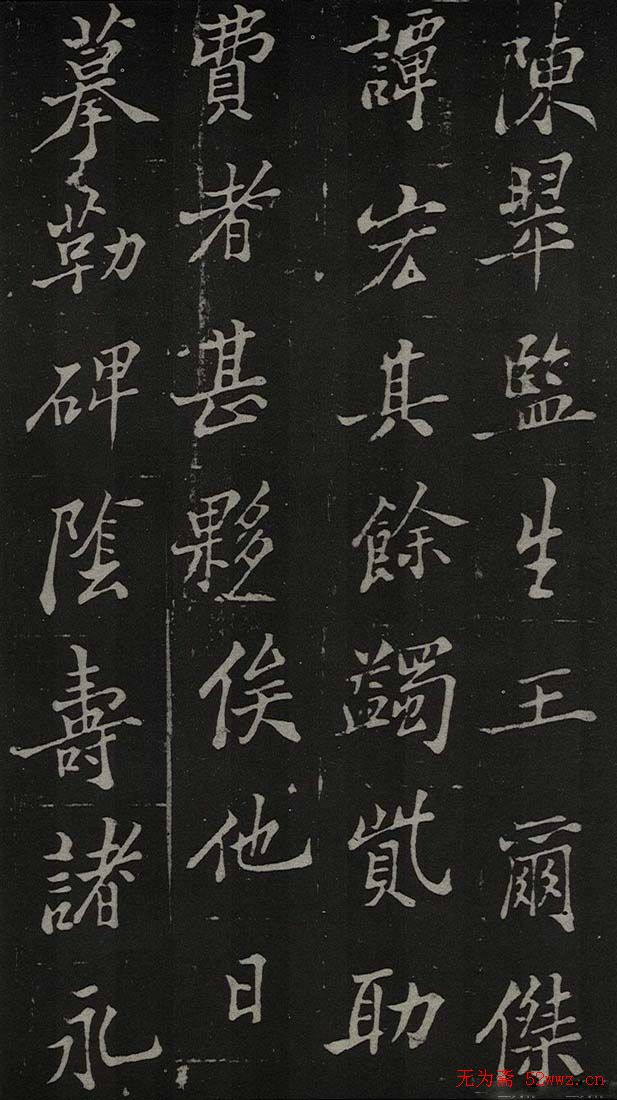 陳翠監生王爾傑
譚宏其餘蠲貲助
費者甚夥俟他日
摹勒碑陰壽諸永
无为斋 52wwz.cn